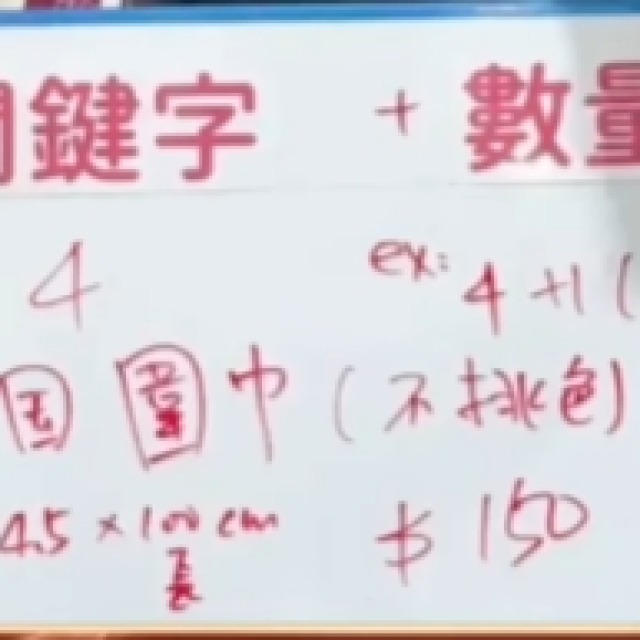 關鍵字 + 數量
4 ex: 4+1(
国 圍巾 (不挑色)
4.5 x 100 cm $150
長